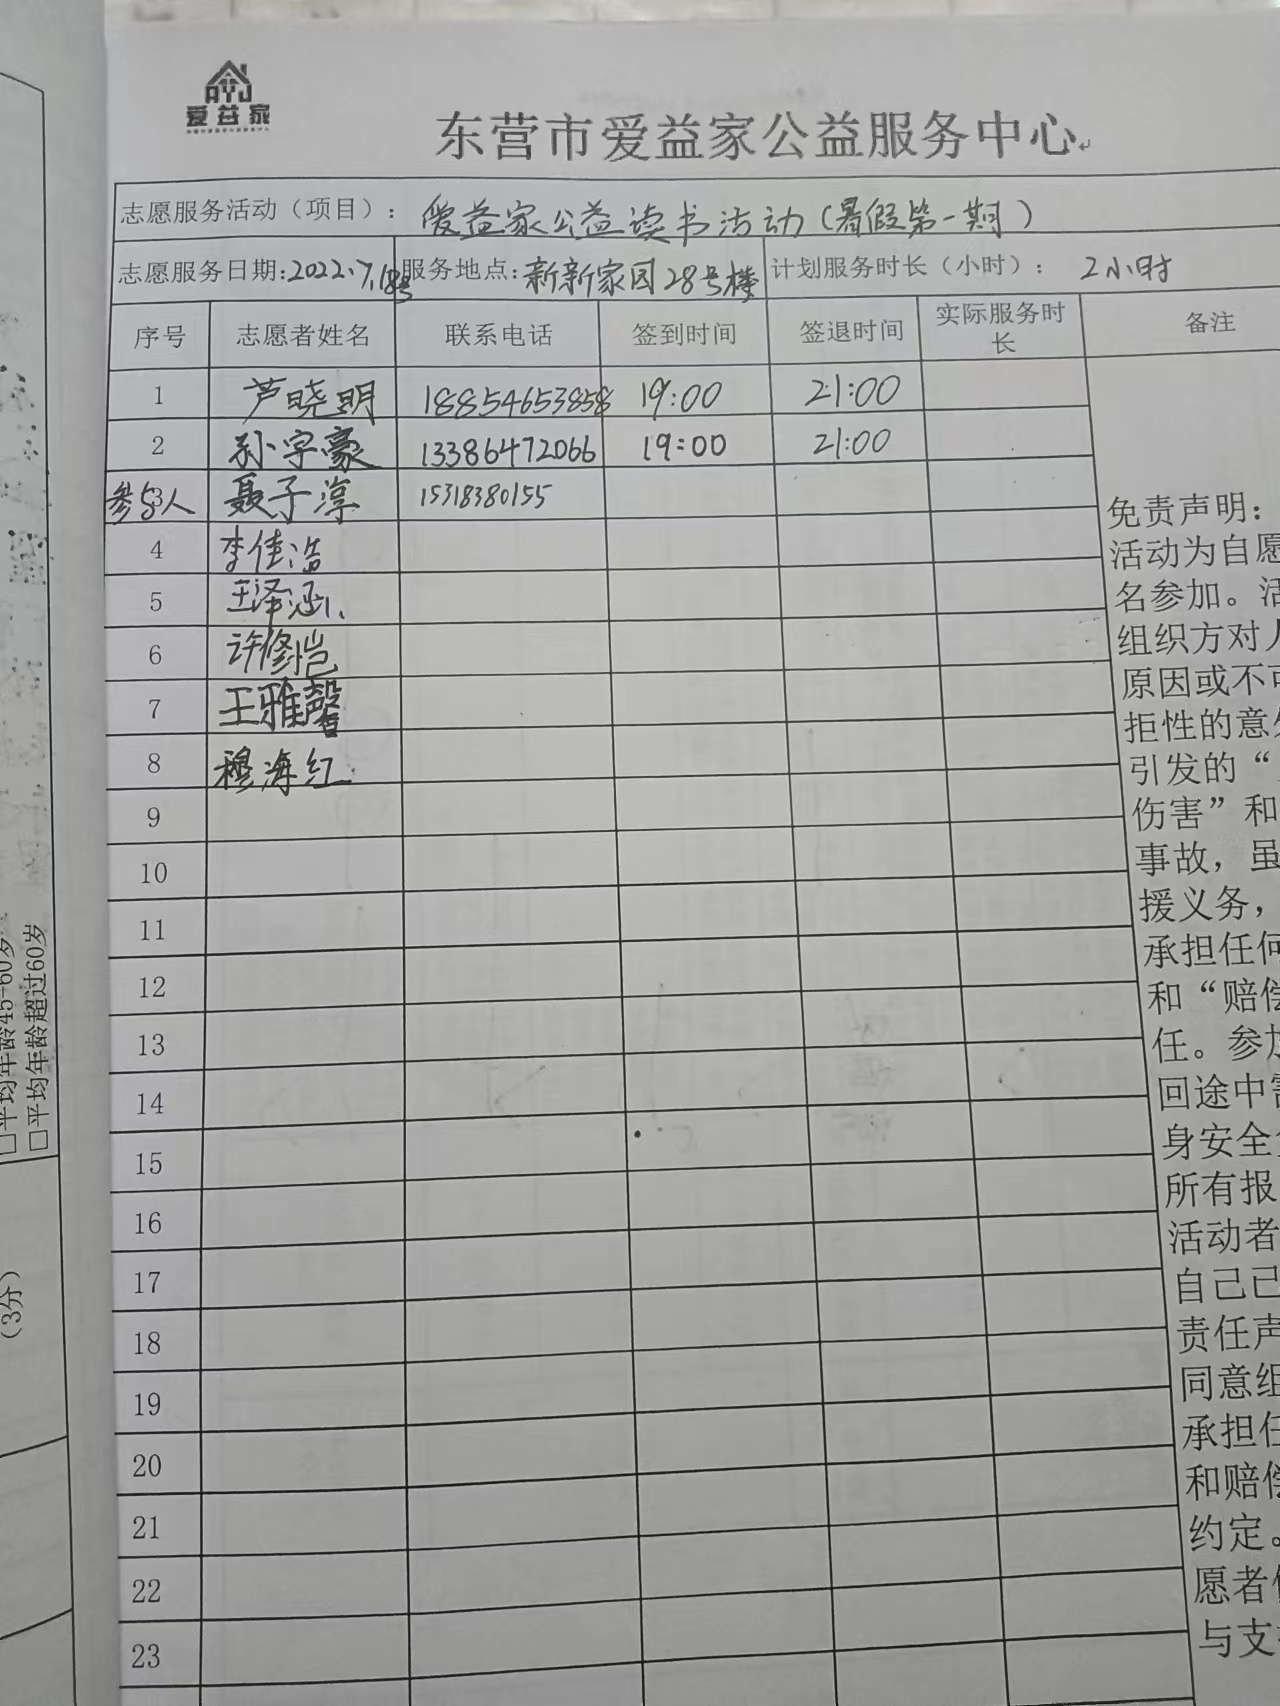 爱益家
东营市爱益家公益服务中心
志愿服务活动（项目）： 爱益家公益读书活动（暑假第一期）
志愿服务日期:2022.7.18号 服务地点:新新家园28号楼 计划服务时长（小时）： 2小时
序号 志愿者姓名 联系电话 签到时间 签退时间 实际服务时长 备注
1 芦晓明 18854653858 19:00 21:00
2 孙宇豪 13386472066 19:00 21:00
参与人 3 聂子淳 15318380155
4 李佳浩
5 王泽涵
6 许修恺
7 王雅馨
8 穆海红
9
10
11
12
13
14
15
16
17
18
19
20
21
22
23
免责声明：
活动为自愿
名参加。活
组织方对人
原因或不可
拒性的意外
引发的“
伤害”和
事故，虽
援义务，
承担任何
和“赔偿
任。参加
回途中害
身安全
所有报
活动者
自己已
责任声
同意组
承担任
和赔偿
约定。
愿者
与支
□平均年龄45-60岁
□平均年龄超过60岁
（3分）